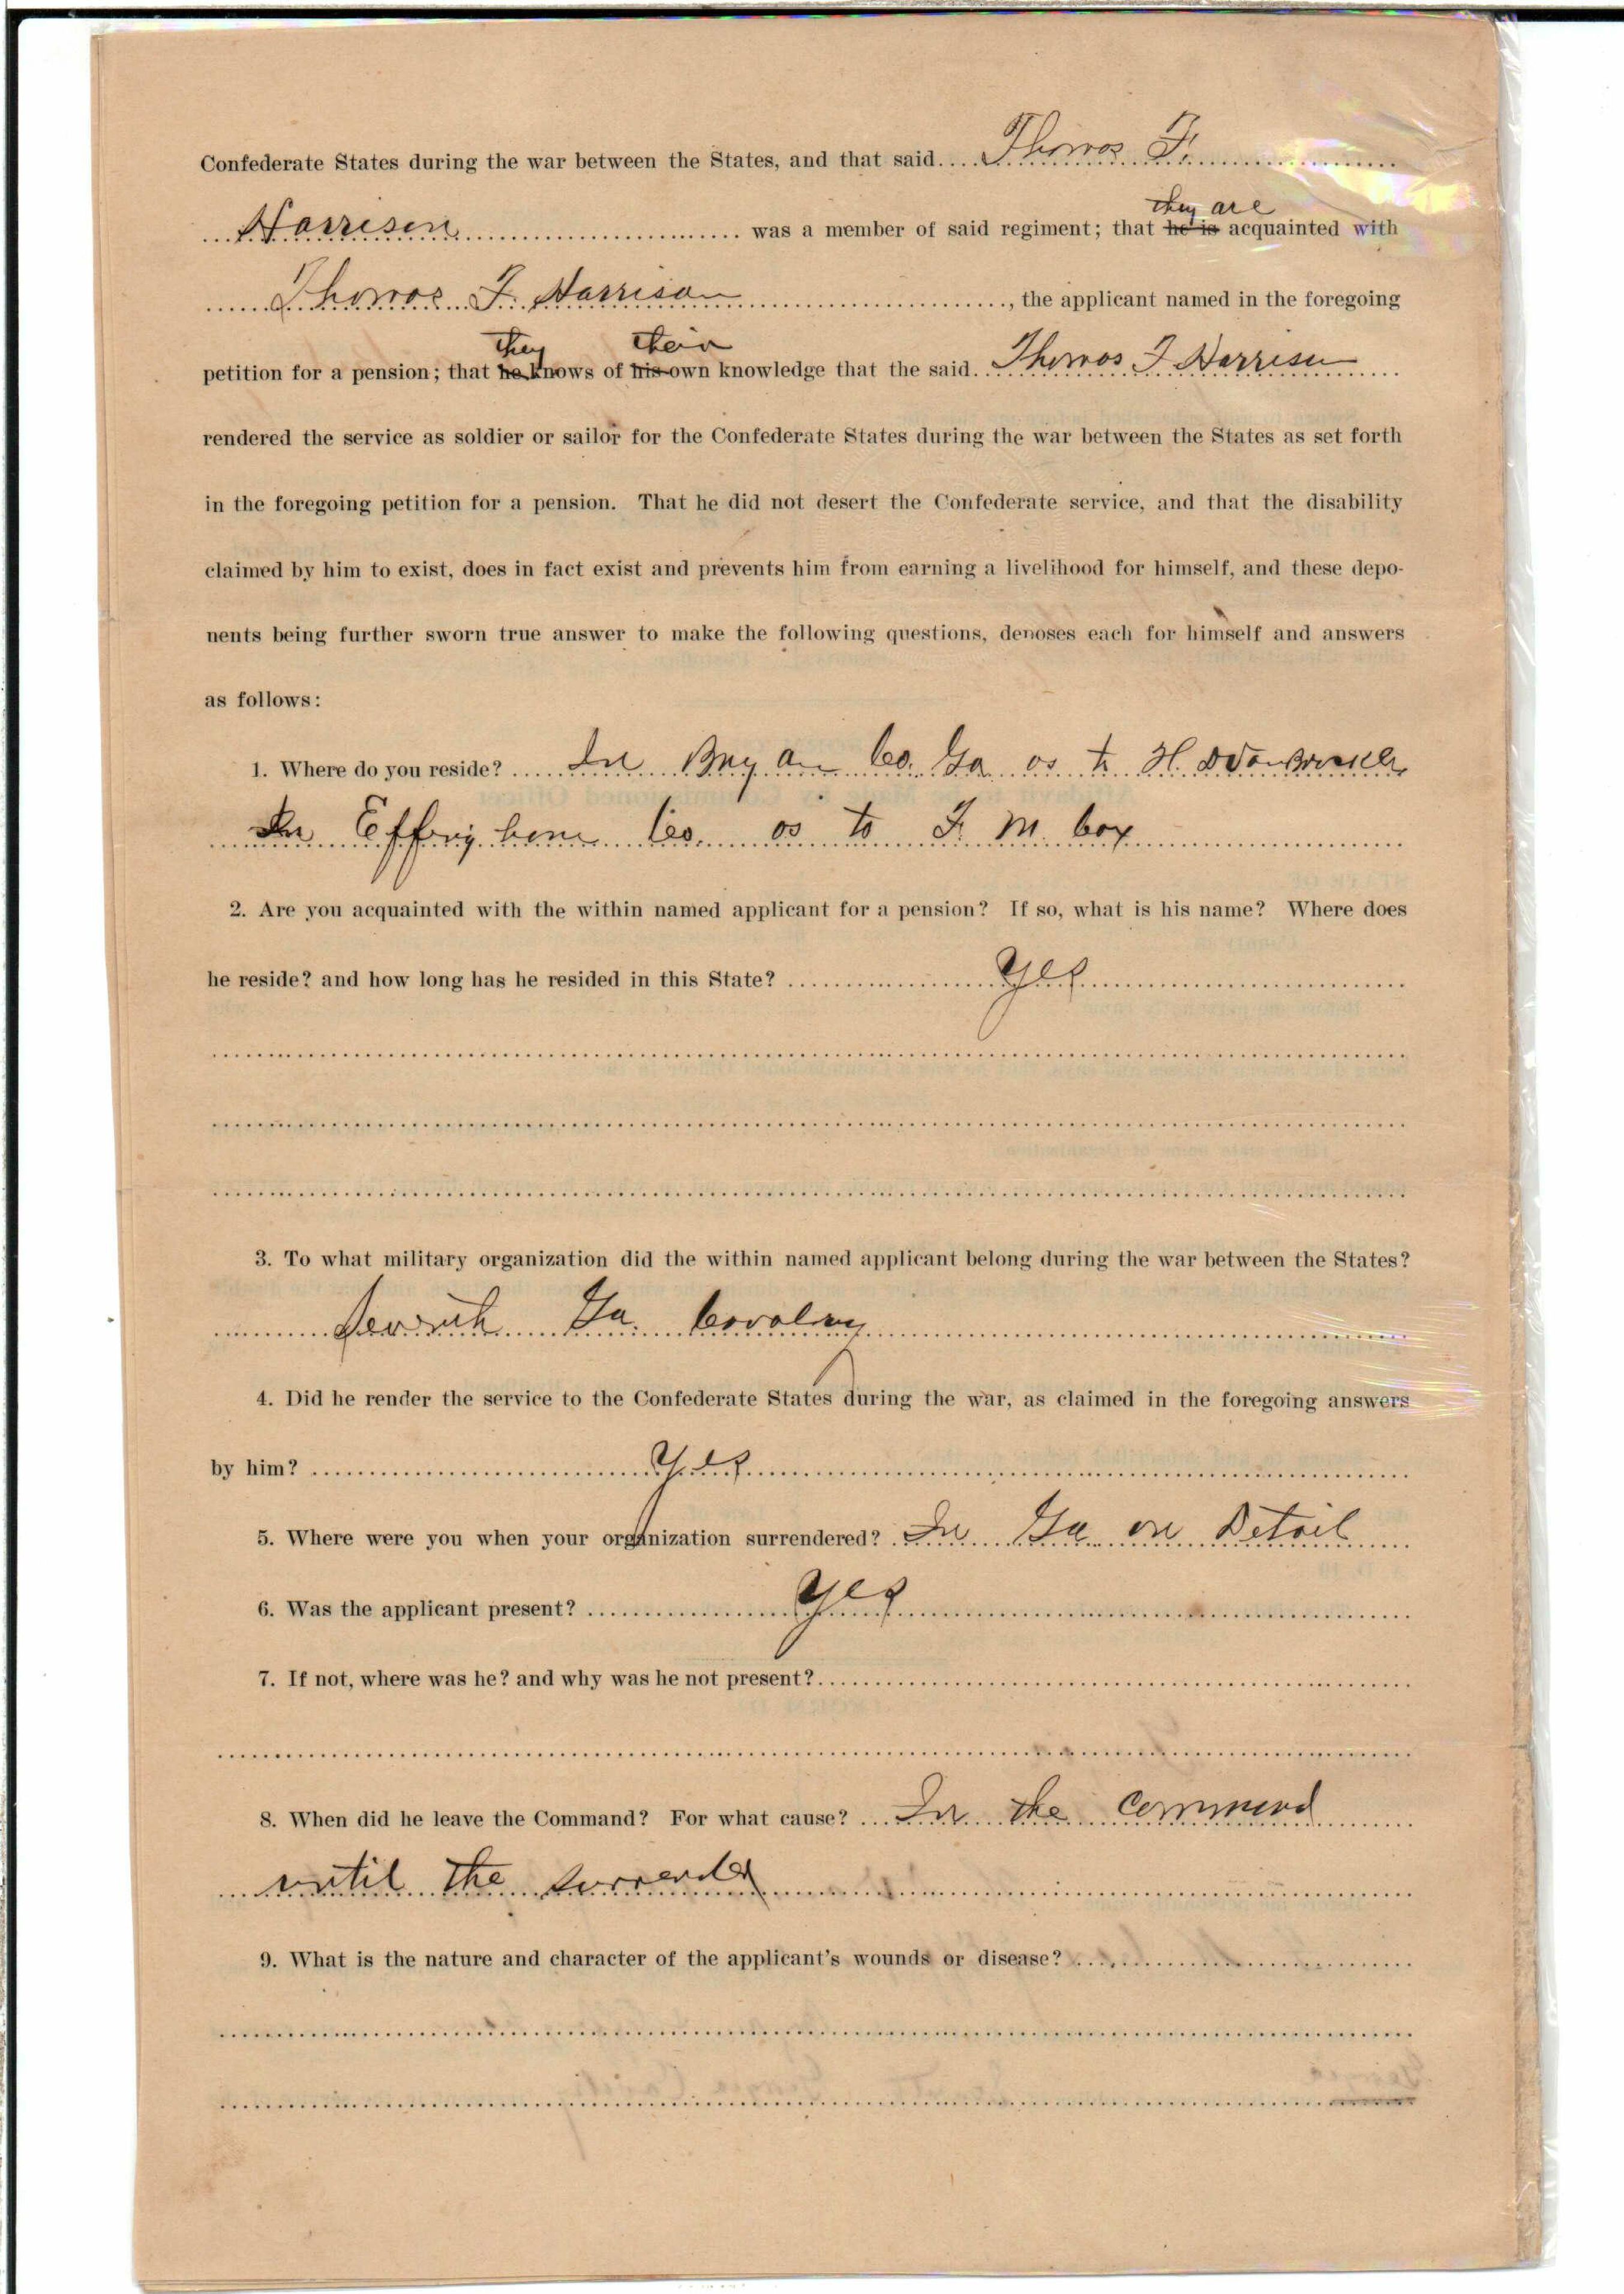 Confederate States during the war between the States, and that said.... Thomas F.
Harrison was a member of said regiment; that they are he is acquainted with
Thomas F. Harrison, the applicant named in the foregoing
petition for a pension; that they he knows of their his own knowledge that the said... Thomas F Harrison
rendered the service as soldier or sailor for the Confederate States during the war between the States as set forth
in the foregoing petition for a pension. That he did not desert the Confederate service, and that the disability
claimed by him to exist, does in fact exist and prevents him from earning a livelihood for himself, and these depo-
nents being further sworn true answer to make the following questions, deposes each for himself and answers
as follows:
1. Where do you reside? In Bryan Co. Ga as to H.
In Effingham Co. as to F. M. Cox
2. Are you acquainted with the within named applicant for a pension? If so, what is his name? Where does
he reside? and how long has he resided in this State? Yes
3. To what military organization did the within named applicant belong during the war between the States?
Seventh Ga. Cavalry
4. Did he render the service to the Confederate States during the war, as claimed in the foregoing answers
by him? Yes
5. Where were you when your organization surrendered? In Ga on Detail
6. Was the applicant present? Yes
7. If not, where was he? and why was he not present?
8. When did he leave the Command? For what cause? In the Command
until the surrender
9. What is the nature and character of the applicant's wounds or disease?